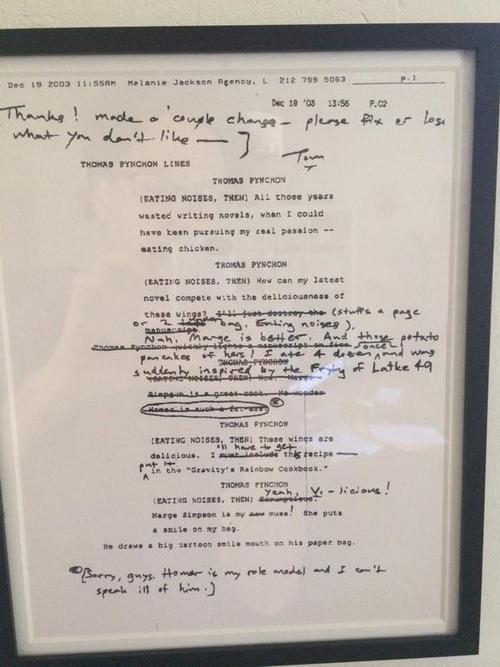 Dec 19 2003 11:55AM Melanie Jackson Agency, L 212 799 5063 p.1
Dec 18 '03 13:56 P.02
Thanks! made a couple changes – please fix or lose
what you don't like —
Tom
THOMAS PYNCHON LINES
THOMAS PYNCHON
(EATING NOISES, THEN) All those years
wasted writing novels, when I could
have been pursuing my real passion --
eating chicken.
THOMAS PYNCHON
(EATING NOISES, THEN) How can my latest
novel compete with the deliciousness of
these wings? I'll just destroy the (stuffs a page
or 2 into bag. Eating noises).
manuscript.
Nah, Marge is better. And those potato
Thomas Pynchon quickly lights a manuscript on fire. once
pancakes of hers! I ate 4 dozen and was
THOMAS PYNCHON
suddenly inspired by the Frying of Latke 49
(EATING NOISES, THEN) Marge
Simpson is a great cook. No wonder
Homer is such a fat-ass.
THOMAS PYNCHON
(EATING NOISES, THEN) These wings are
'll have to get
delicious. I must include this recipe —
put it
in the "Gravity's Rainbow Cookbook."
THOMAS PYNCHON
Yeah, V. – licious!
(EATING NOISES, THEN)
Marge Simpson is my new muse! She puts
a smile on my bag.
He draws a big cartoon smile mouth on his paper bag.
[Sorry, guys. Homer is my role model and I can't
speak ill of him.]